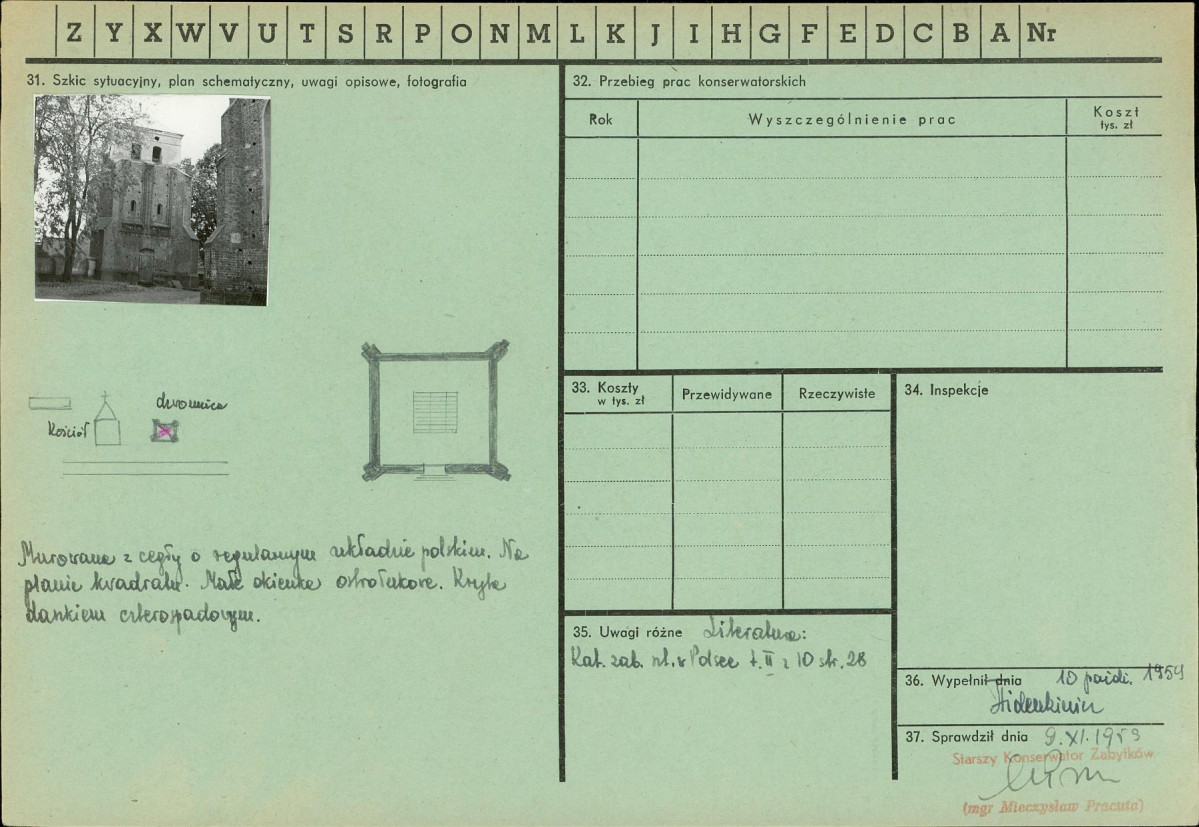 Z Y X W V U T S R P O N M L K J I H G F E D C B A Nr
31. Szkic sytuacyjny, plan schematyczny, uwagi opisowe, fotografia
dzwonnica
Kościół
Murowana z cegły o regularnym układzie polskim. Na
planie kwadratu. Małe okienka ostrołukowe. Kryta
daszkiem czterospadowym.
32. Przebieg prac konserwatorskich
Rok
Wyszczególnienie prac
Koszt
tys. zł
33. Koszty
w tys. zł
Przewidywane
Rzeczywiste
34. Inspekcje
35. Uwagi różne Literatura:
Kat. zab. szt. w Polsce t. II z 10 str. 28
36. Wypełnił dnia 10 paźdz. 1959
37. Sprawdził dnia 9.XI.1959
Starszy Konserwator Zabytków
(mgr Mieczysław Pracuta)